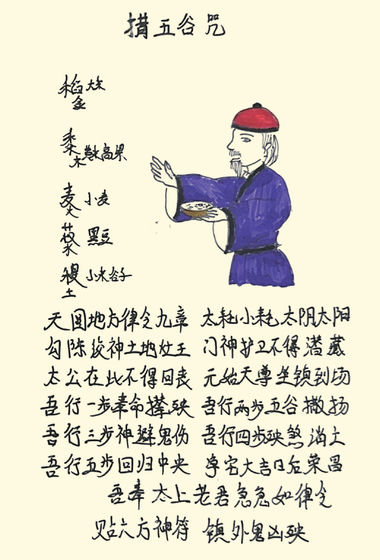 措五谷咒
稻 大米
金
黍 散高粱
木
麦 小麦
火
菽 黑豆
水
稷 小米谷子
土
天圆地方律令九章 太耗小耗太阴太阳
勾陈 神土地女王 门神护卫不得潜藏
太公在此不得回丧 元始天尊坐镇到场
吾行一步奉命 殃 吾行两步五谷撒扬
吾行三步神避鬼伤 吾行四步殃煞消亡
吾行五步回归中央 孝宅大吉日后荣昌
吾奉太上老君急急如律令
贴六方神符 镇外鬼凶殃